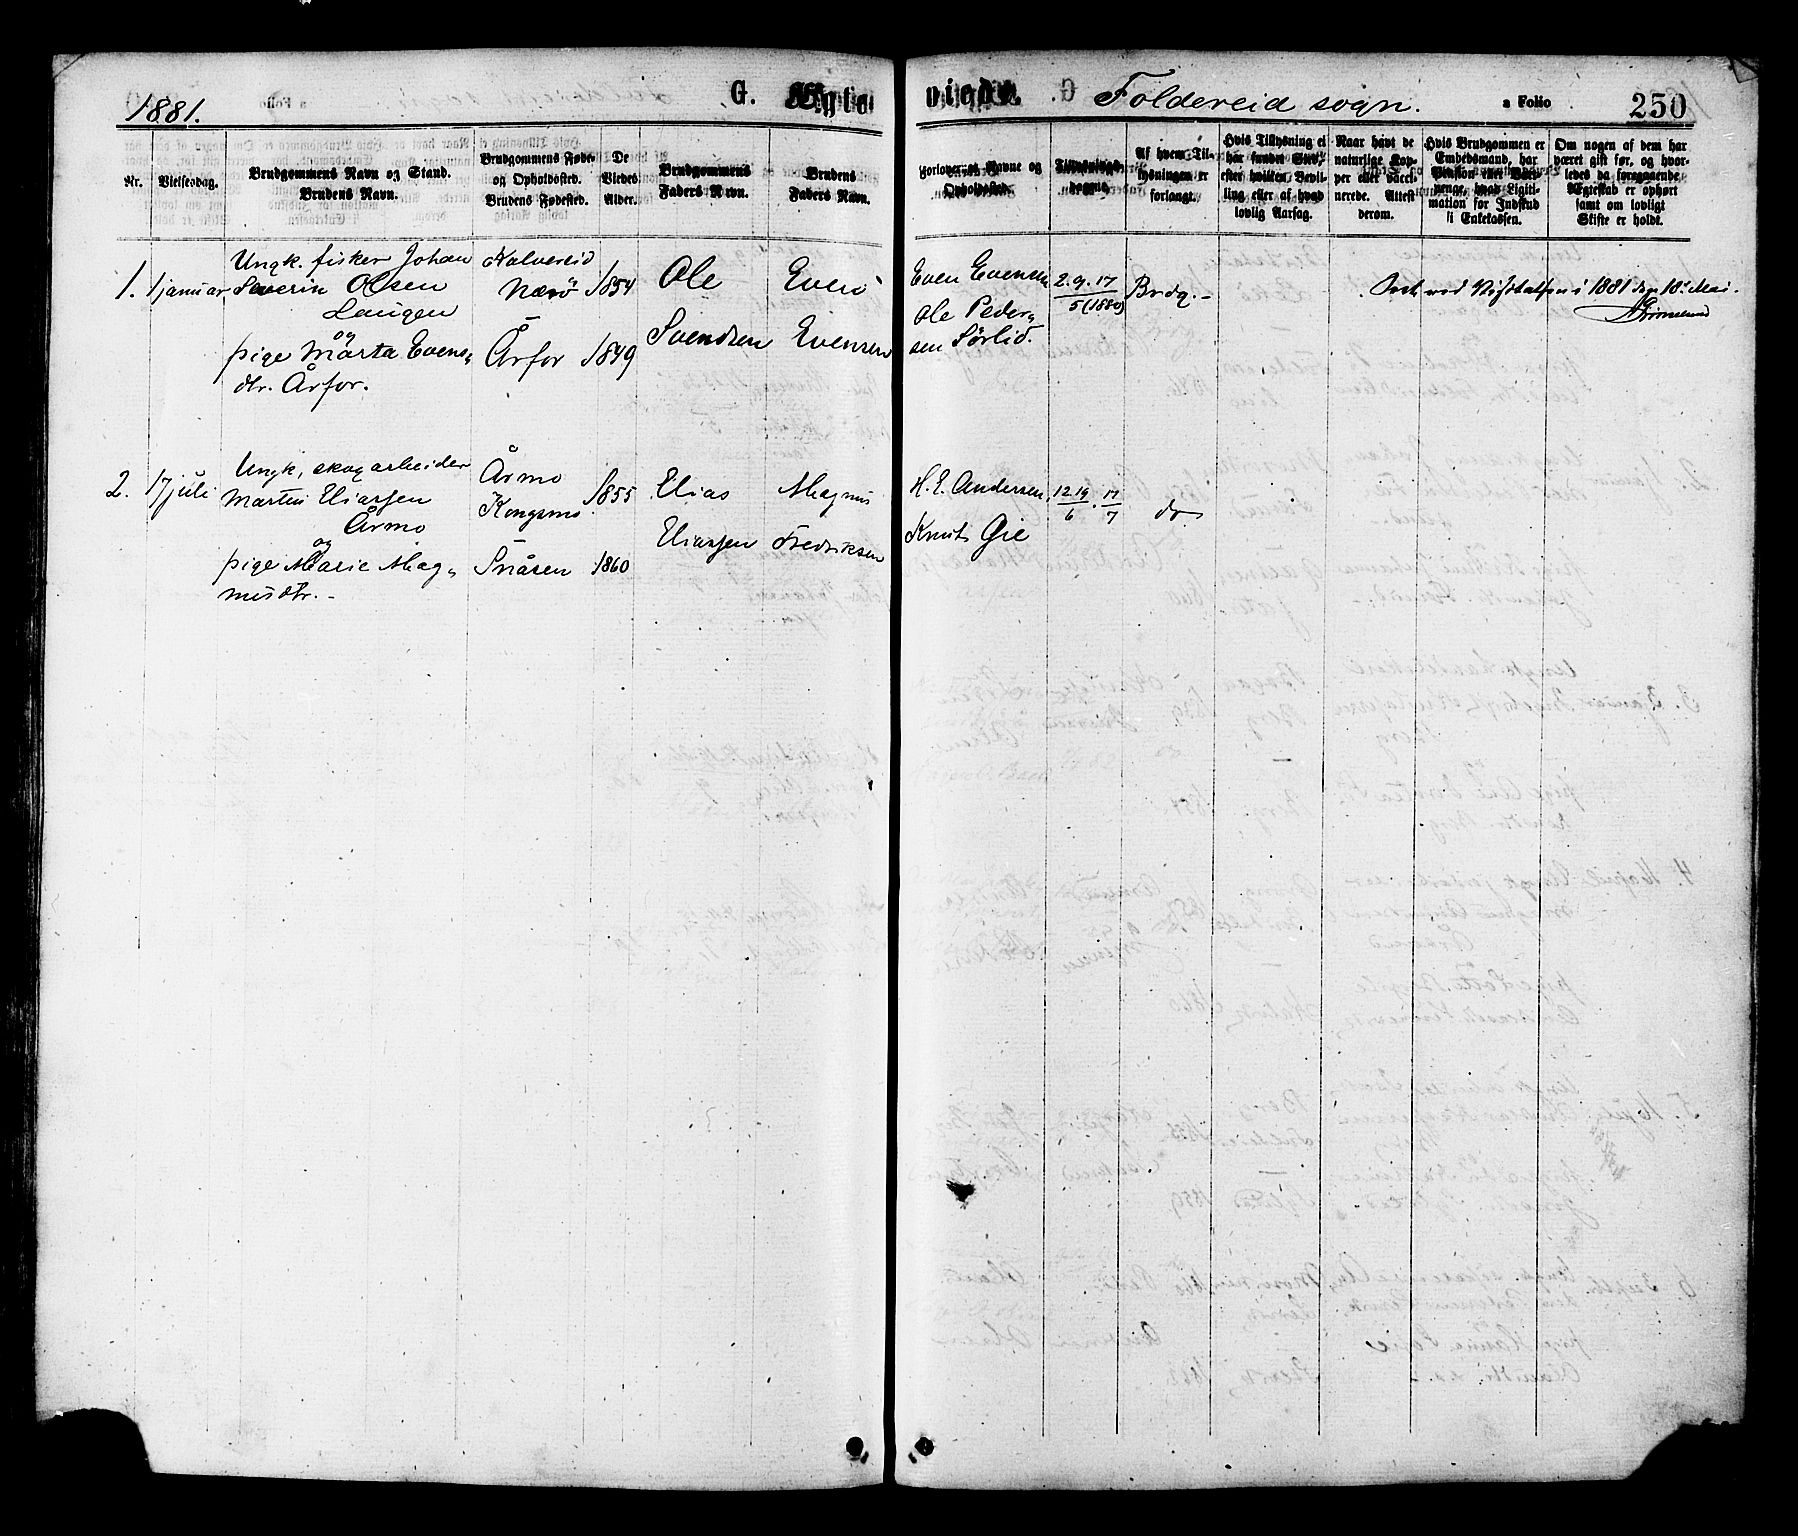 1881.
G. Ægte
viede.
Foldereid sogn.
a Folio
250
Nr.
Vielsesdag.
Brudgommens Navn og Stand.
Brudens Navn.
Brudgommens Føde-
og Opholdssted.
Brudens Fødested.
De
Viedes
Alder.
Brudgommens
Faders Navn.
Brudens
Faders Navn.
Forlovernes Navne og
Opholdssted.
Tillysnings-
dagene.
Af hvem Til-
lysningen er
forlangt.
Hvis Tillysning ei
har fundet Sted,
efter hvilken Bevil-
ling eller af hvad
lovlig Aarsag.
Naar havt de
naturlige Kop-
per eller vacci-
nerede. Attest
derom.
Hvis Brudgommen er
Embedsmand, har
Pension eller Vart-
penge, hvad Legiti-
mation for Indskud
i Enkekassen.
Om nogen af dem har
været gift før, og hvor-
ledes da foregaaende
Ægteskab er ophørt
samt om lovligt
Skifte er holdt.
1. 1 januar
Ungk. fisker Johan
Severin Olsen
Laugen
og
pige Marta Evens-
dtr. Årfor.
Kalvereid
Nærö
Årfor
1854
1849
Ole
Svendsen
Even
Evensen
Even Evensen
Ole Peder-
sen Sörlid.
2. 9. 17
5 (1880)
Brdg. -
ved Visitatsen i 1881 den 10' Mai.
2. 17 juli
Ungk. skogarbeider
Martin Eliassen
Årmo
og
pige Marie Mag-
nusdtr. -
Årmo
Kongsmo
Snåsen
1855
1860
Elias
Eliassen
Magnus
Fredriksen
H. E. Andersen
Knut Gie
12 19 . 17
6 7
do